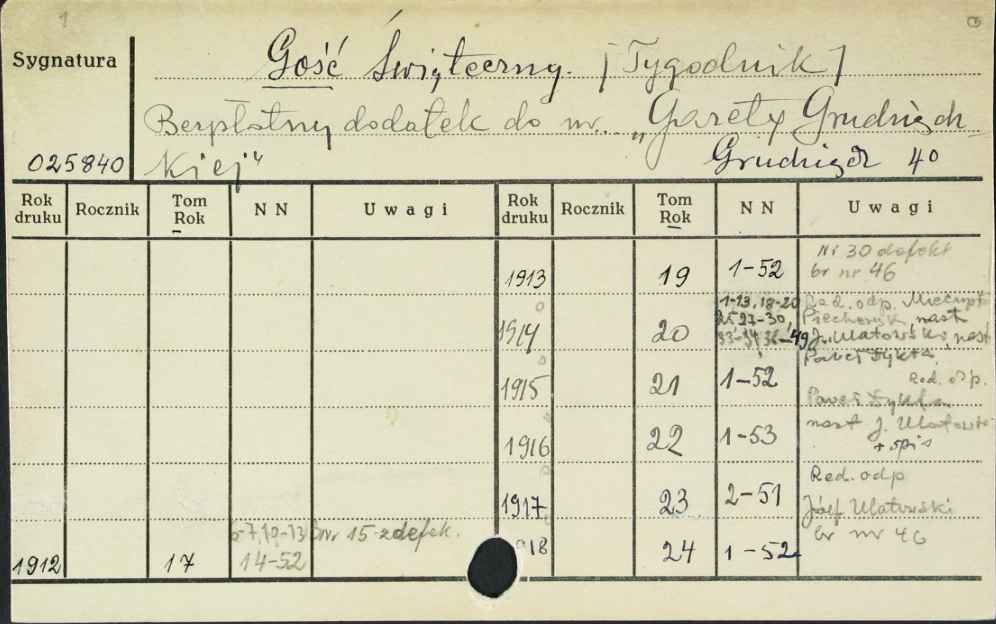 1
Sygnatura
Gość Świąteczny. [Tygodnik]
Bezpłatny dodatek do nr. „Gazety Grudziądz
kiej"
Grudziądz 40
025840
Rok druku Rocznik Tom Rok NN Uwagi Rok druku Rocznik Tom Rok NN Uwagi
1913 19 1-52 Nr 30 defekt
br nr 46
1914 20 1-13, 18-20 Red. odp.
27-30, Piechowik, nast
-49 J. Ulatowski, nast
Paweł Dykta
1915 21 1-52 Red. odp.
Paweł Dykta
1916 22 1-53 nast J. Ulatowski
+ spis
1917 23 2-51 Red. odp
Józef Ulatowski
1912 17 6-7, 10-13 nr 15 z defek.
14-52
1918 24 1-52 br nr 46